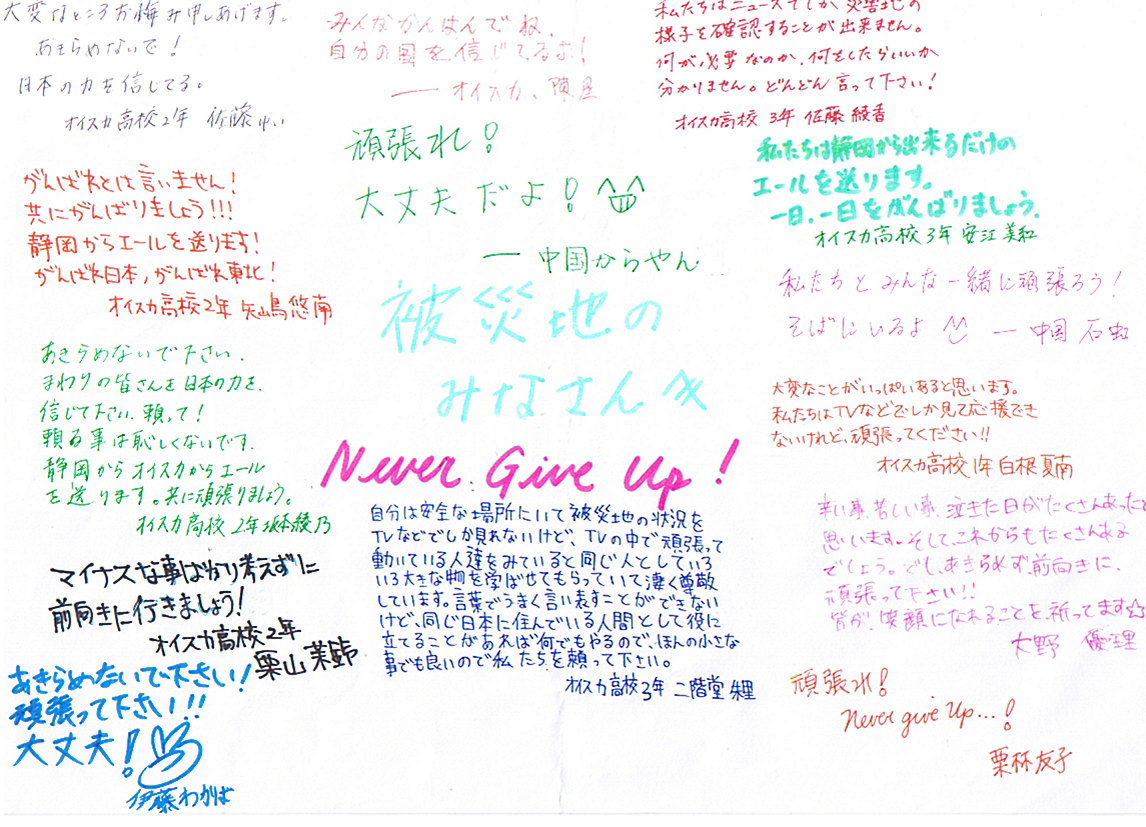 大変なところお悔み申しあげます。
あきらめないで！
日本の力を信じてる。
オイスカ高校2年 佐藤ゆい
がんばれとは言いません！
共にがんばりましょう!!!
静岡からエールを送ります！
がんばれ日本，がんばれ東北！
オイスカ高校2年 矢嶋悠南
あきらめないで下さい．
まわりの皆さんを日本の力を．
信じて下さい．頼って！
頼る事は恥しくないです．
静岡からオイスカからエール
を送ります。共に頑張りましょう。
オイスカ高校 2年 坂本綾乃
マイナスな事ばかり考えずに
前向きに行きましょう！
オイスカ高校2年
栗山茉鈴
あきらめないで下さい！
頑張って下さい!!
大丈夫！
伊藤わかば
みんながんばんでね．
自分の国を信じてるよ！
— オイスカ、陳昱
頑張れ！
大丈夫だよ！
— 中国からやん
被災地の
みなさんへ
Never Give Up!
自分は安全な場所にいて被災地の状況を
TVなどでしか見れないけど、TVの中で頑張って
動いている人達をみていると同じ人としていろ
いろ大きな物を学ばせてもらっていて凄く尊敬
しています。言葉でうまく言い表すことができない
けど、同じ日本に住んでいる人間として役に
立てることがあれば何でもやるので、ほんの小さな
事でも良いので私たちを頼って下さい。
オイスカ高校3年 二階堂 朱理
私たちはニュースでしか災害地の
様子を確認することが出来ません。
何が必要なのか、何をしたらいいか
分かりません。どんどん言って下さい！
オイスカ高校 3年 佐藤 綾香
私たちは静岡から出来るだけの
エールを送ります。
一日、一日をがんばりましょう．
オイスカ高校3年 安江 美紅
私たちとみんな一緒に頑張ろう！
そばにいるよ — 中国 石虹
大変なことがいっぱいあると思います。
私たちはTVなどでしか見て応援でき
ないけれど、頑張ってください!!
オイスカ高校1年 白根夏南
辛い事、苦しい事、泣きた日がたくさんあったと
思います。そしてこれからもたくさんある
でしょう。でも、あきらめず前向きに．
頑張って下さい!!
皆が、笑顔になれることを祈ってます☆
大野 優理
頑張れ！
Never give Up...!
栗林友子